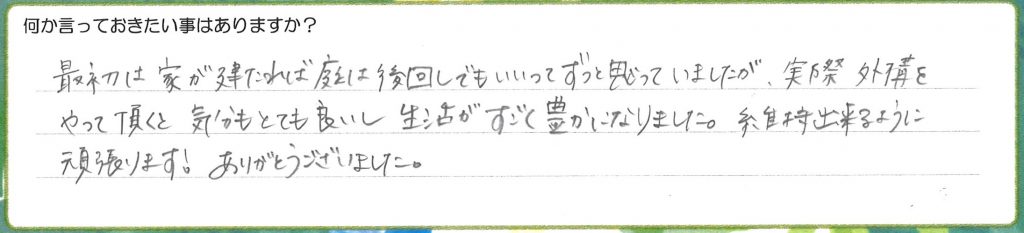 何か言っておきたい事はありますか？
最初は家が建たれば庭は後回しでもいいってずっと思っていましたが、実際外構を
やって頂くと気分もとても良いし生活がすごく豊かになりました。維持出来るように
頑張ります！ありがとうございました。